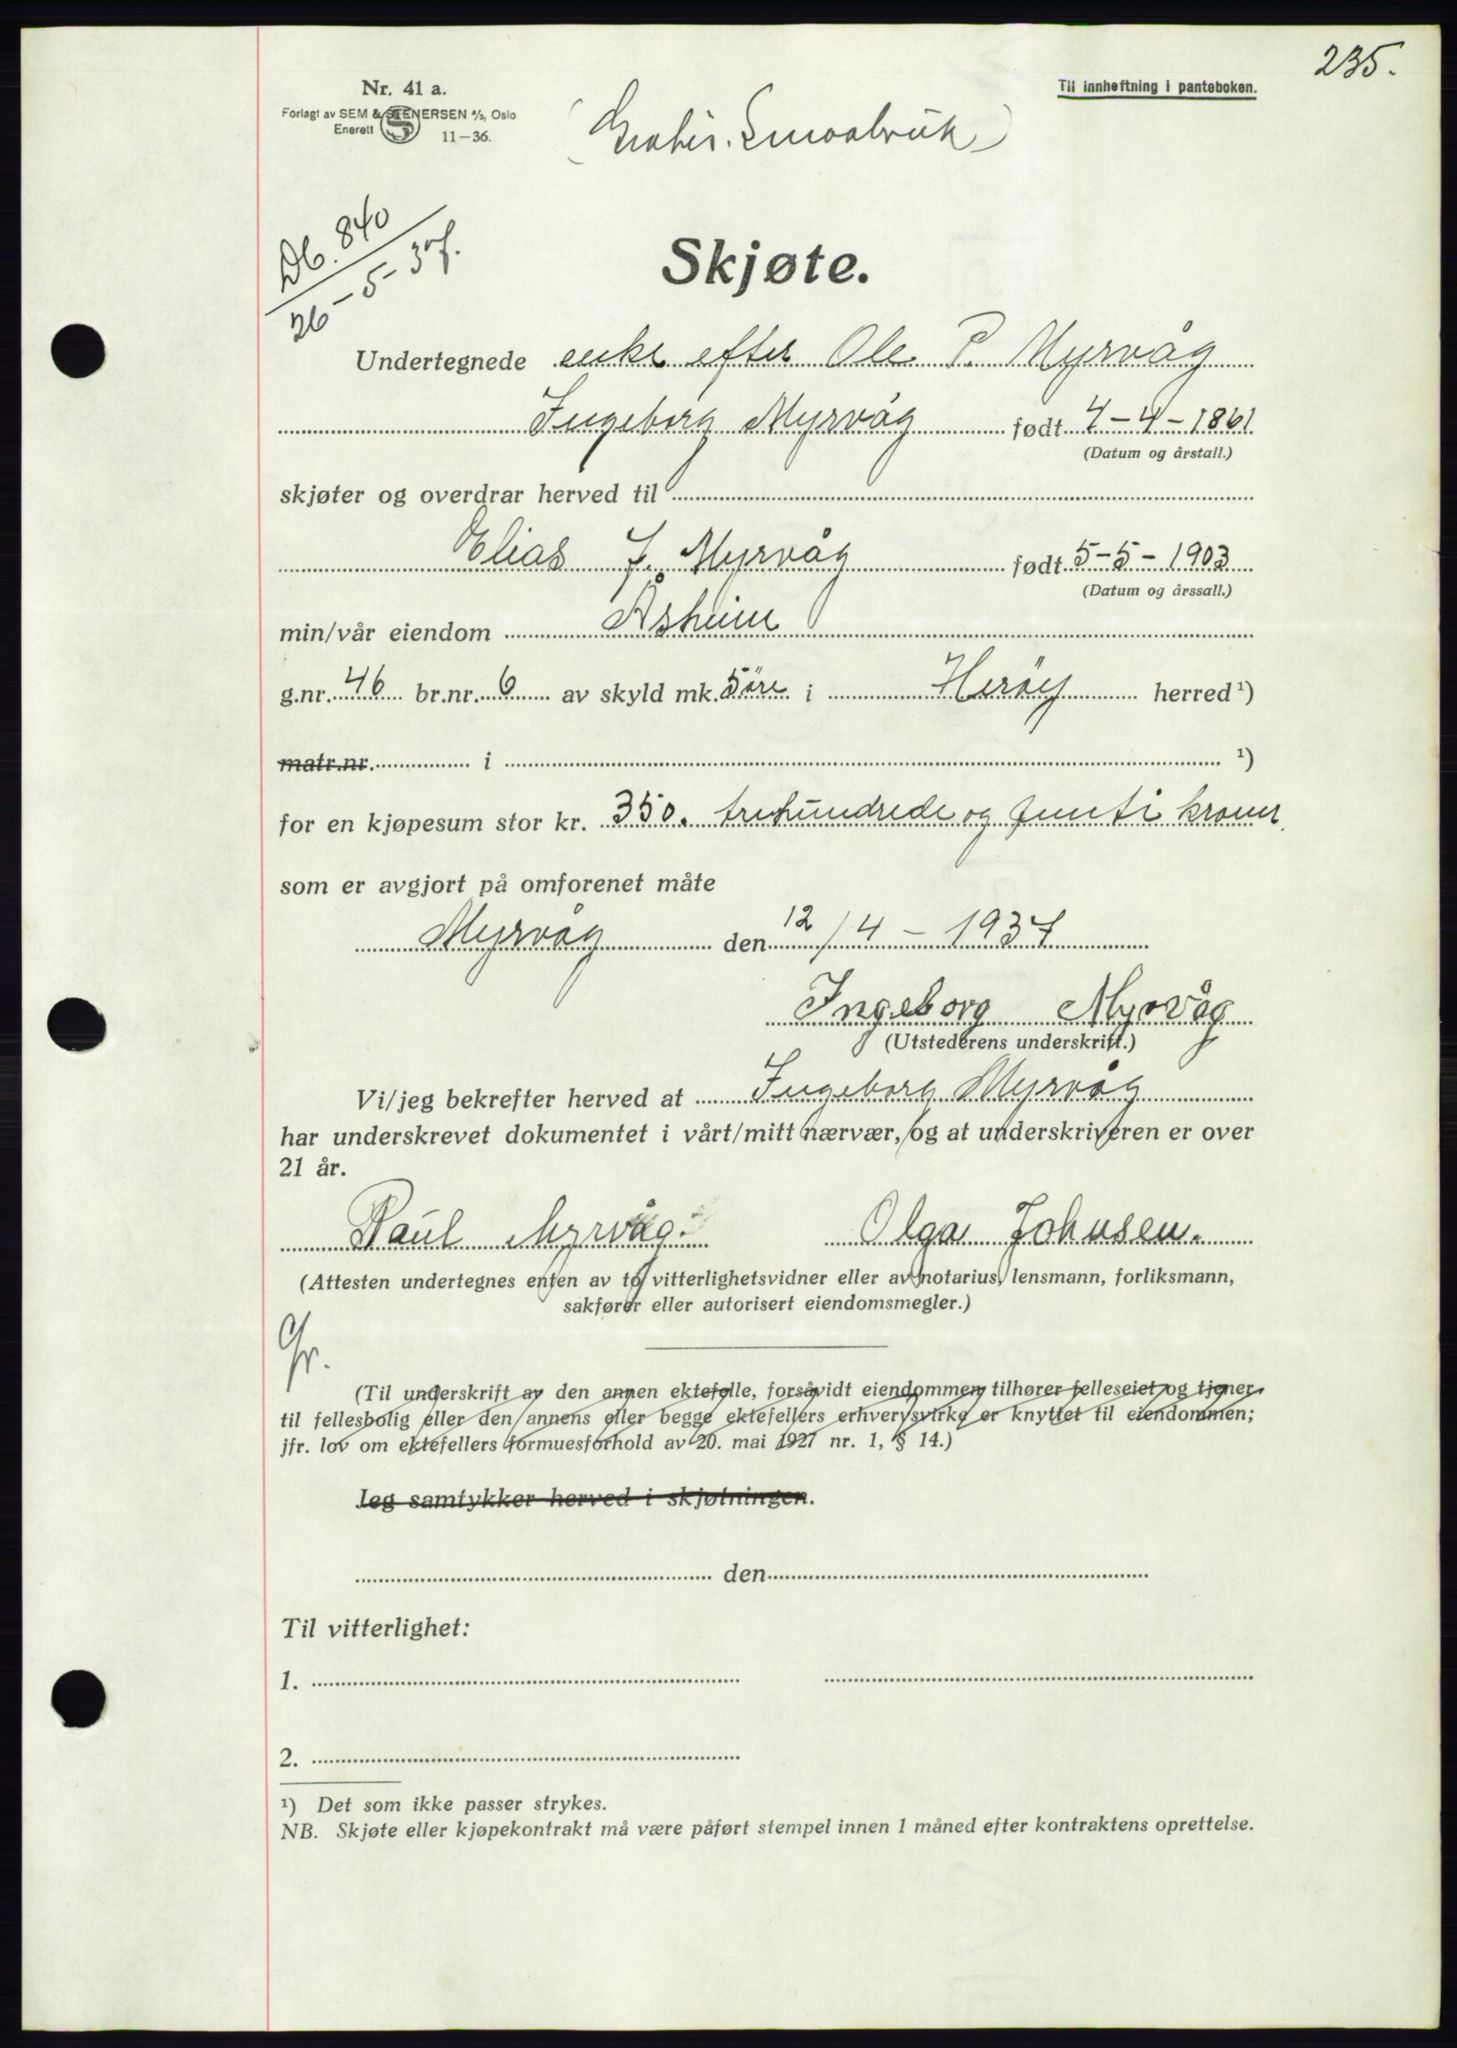 235.
Nr. 41 a.
Til innheftning i panteboken.
Forlagt av SEM & STENERSEN A/S, Oslo
Enerett
11-36.
(Gratis. Småbruk)
Db. 840
26-5-37.
Skjøte.
Undertegnede enke efter Ole P. Myrvåg
Ingeborg Myrvåg født 7-4-1861
(Datum og årstall.)
skjøter og overdrar herved til
Elias J. Myrvåg født 5-5-1903
(Datum og årssall.)
min/vår eiendom Åsheim
g.nr. 46 br.nr. 6 av skyld mk. 5 øre i Herøy herred ¹)
matr.nr. i ¹)
for en kjøpesum stor kr. 350. trehundrede og femti kroner.
som er avgjort på omforenet måte
Myrvåg den 12/4-1937
Ingeborg Myrvåg
(Utstederens underskrift.)
Vi/jeg bekrefter herved at Ingeborg Myrvåg
har underskrevet dokumentet i vårt/mitt nærvær, og at underskriveren er over
21 år.
Paul Myrvåg. Olga Johnsen.
(Attesten undertegnes enten av to vitterlighetsvidner eller av notarius, lensmann, forliksmann,
sakfører eller autorisert eiendomsmegler.)
(Til underskrift av den annen ektefelle, forsåvidt eiendommen tilhører felleseiet og tjener
til fellesbolig eller den annens eller begge ektefellers erhvervsvirke er knyttet til eiendommen;
jfr. lov om ektefellers formuesforhold av 20. mai 1927 nr. 1, § 14.)
Jeg samtykker herved i skjøtningen.
den
Til vitterlighet:
1.
2.
¹) Det som ikke passer strykes.
NB. Skjøte eller kjøpekontrakt må være påført stempel innen 1 måned efter kontraktens oprettelse.